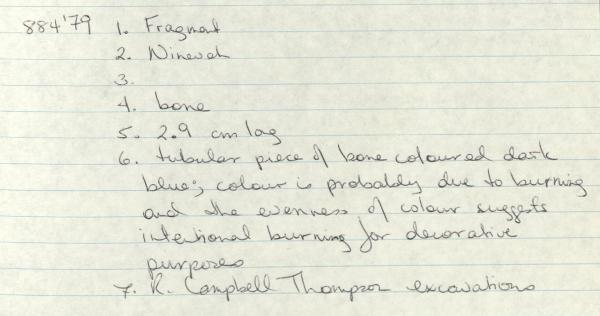 884'79 1. Fragment
2. Ninevah
3.
4. bone
5. 2.9 cm log
6. tubular piece of bone coloured dark
blue; colour is probably due to burning
and the evenness of colour suggests
intentional burning for decorative
purposes
7. R. Campbell Thompson excavations